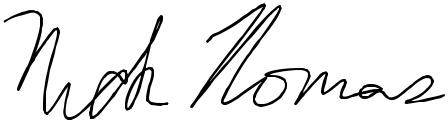 Nick Thomas